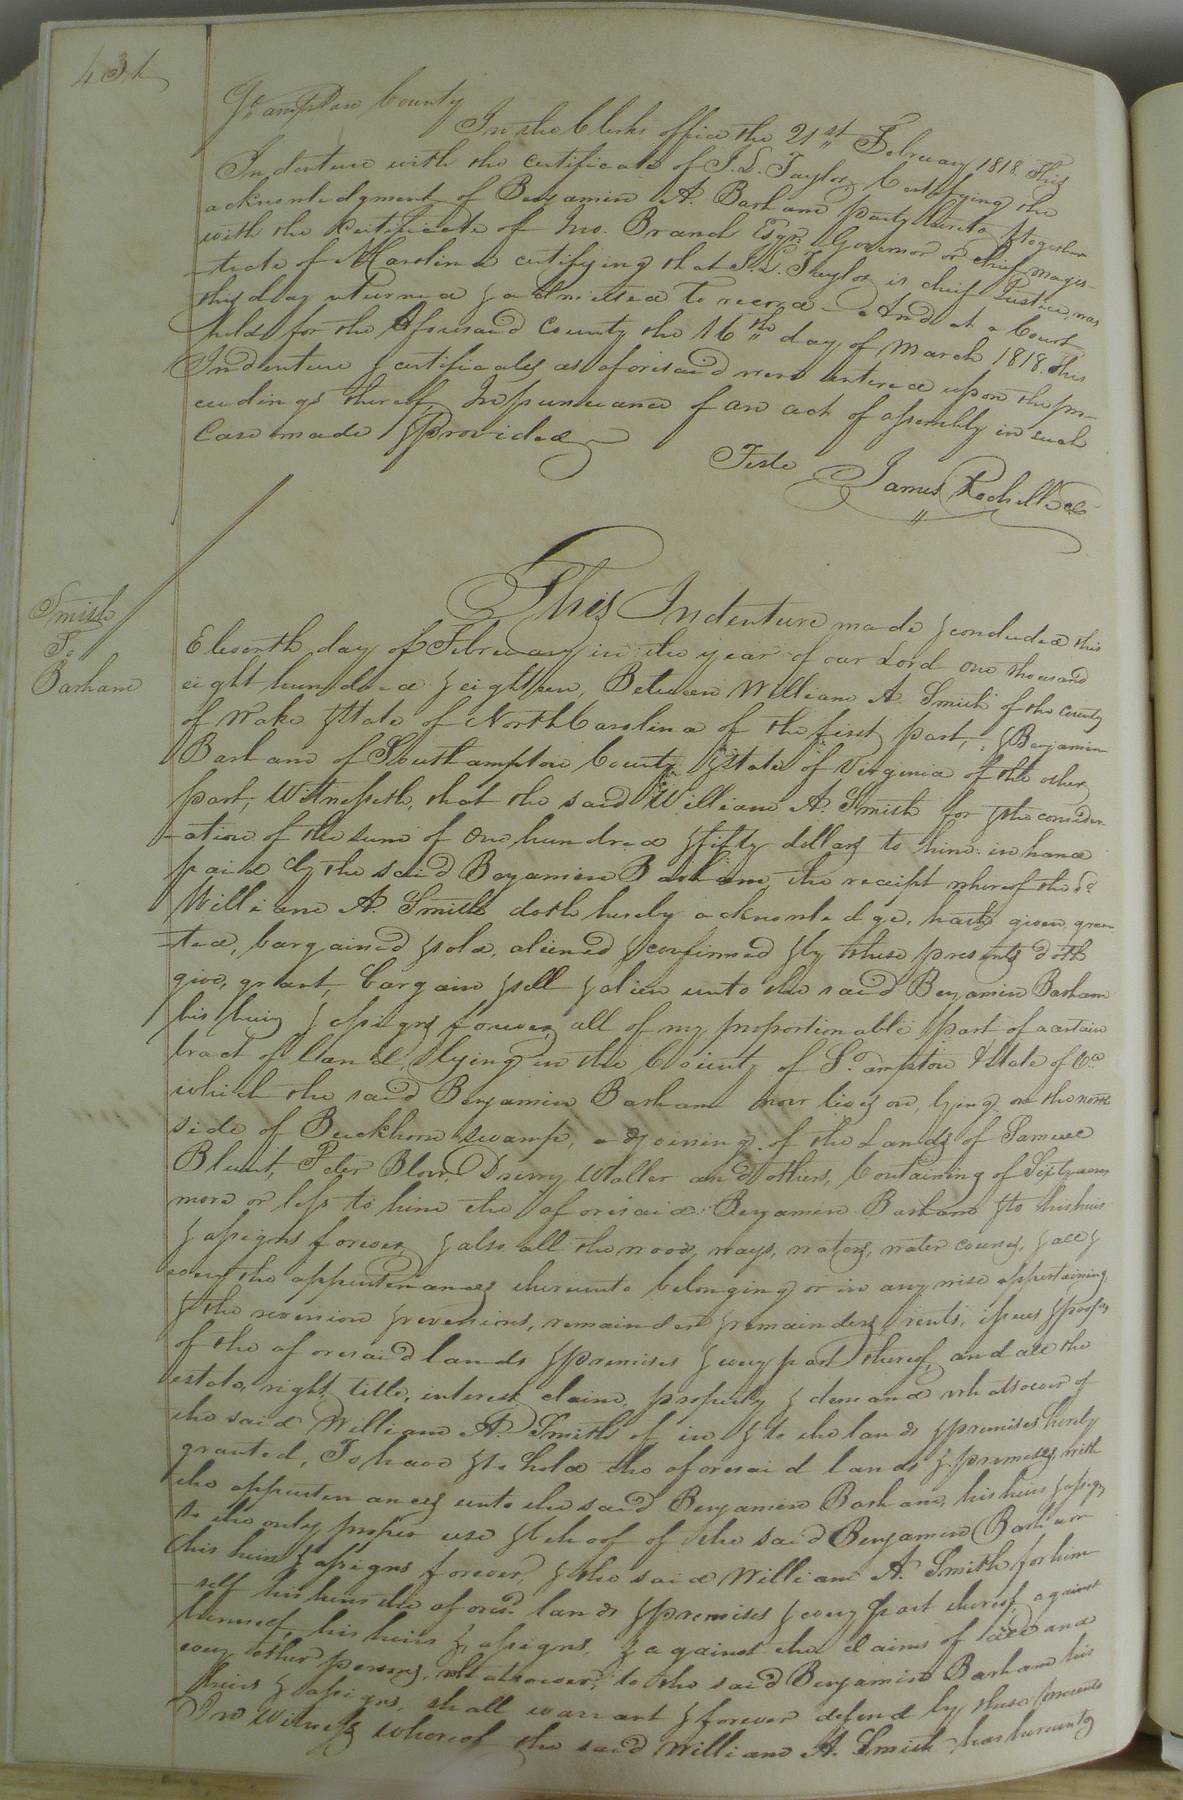 434
Sº ampton County
In the Clerks office the 21st February 1818. This
Indenture with the certificate of J. L. Taylor Certifying the
acknowledgment of Benjamin A. Barham party thereto, together
with the Certificate of Jno. Brand Esqr. Governor or chief Majes-
-trate of N Carolina certifying that J. L. Taylor is chief Justice, was
this day returned & admitted to record - And at a Court
held for the aforesaid County the 16th day of March 1818. This
Indenture & certificates as aforesaid were entered upon the pro-
ceedings thereof, In pursuance of an act of assembly in such
Case made & provided
Teste James Rochelle Cc
Smith
To
Barham
This Indenture made & concluded this
Eleventh day of February in the year of our Lord one thousand
eight hundred & eighteen, Between William A. Smith of the county
of Wake & State of North Carolina of the first part, & Benjamin
Barham of Southampton County & State of Virginia of the other
part, Witnesseth, that the said William A. Smith for & the consider
-ation of the sum of One hundred & fifty dollars to him in hand
paid by the said Benjamin Barham, the receipt whereof the sd
William A. Smith doth hereby acknowledge, hath given gran
-ted, bargained & sold, aliened & confirmed & by these presents doth
give, grant, bargain & sell & alien unto the said Benjamin Barham
his heirs & assigns forever, all of my proportionable part of a certain
tract of Land, lying in the County of Sº ampton & State of Va
which the said Benjamin Barham now lives on, lying on the north
side of Buckhorn swamp, adjoining of the Lands of Samuel
Blunt, Peter Blow, Drewry Waller and others, Containing of Sixty acres
more or less to him the aforesaid Benjamin Barham & to his heirs
& assigns forever, & also all the woods, ways, waters, water courses, & all &
every the appurtenances thereunto belonging or in any wise appertaining,
& the reversion & reversions, remainder & remainders, rents, issues & profits
of the aforesaid lands & premises & every part thereof, and all the
estate, right, title, interest, claim, property & demand whatsoever of
the said William A. Smith of in & to the lands & premises hereby
granted, To have & to hold the aforesaid lands & premises, with
the appurtenances unto the said Benjamin Barham, his heirs & assigns
to the only proper use & behoof of the said Benjamin Barham
his heirs & assigns forever, & the said William A. Smith for him
self his heirs the aforesd. lands & premises & every part thereof, against
himself, his heirs & assigns, & against the claims of all and
every other persons, whatsoever, to the said Benjamin Barham his
heirs & assigns, shall warrant & forever defend by these presents
In Witness whereof the said William A. Smith has hereunto